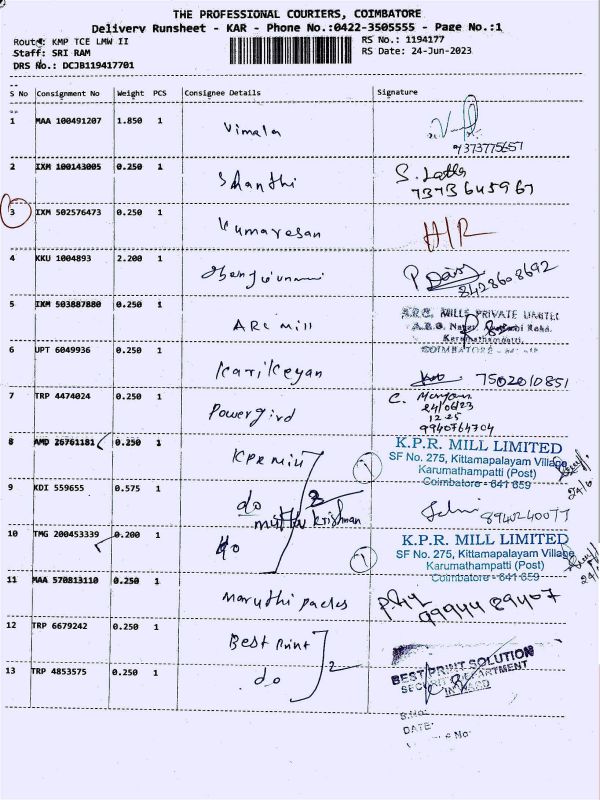 THE PROFESSIONAL COURIERS, COIMBATORE
Delivery Runsheet - KAR - Phone No.:0422-3505555 - Page No.:1
Route: KMP TCE LMW II
RS No.: 1194177
Staff: SRI RAM
RS Date: 24-Jun-2023
DRS No.: DCJB119417701
S No Consignment No Weight PCS Consignee Details Signature
1 MAA 100491207 1.850 1 Vimala
7373775657
2 IXM 100143005 0.250 1 Shanthi S. Latha
7373645967
3 IXM 502576473 0.250 1 Kumaresan H/R
4 KKU 1004893 2.200 1 P Daisy
8428608692
5 IXM 503887880 0.250 1 ARC mill A.R.C. MILLS PRIVATE LIMITED
Karumathampatti
COIMBATORE
6 UPT 6049936 0.250 1 Karikeyan 7502010851
7 TRP 4474024 0.250 1 Powergird C.
24/06/23
12.25
9940764704
8 AMD 26761181 0.250 1 KPR mill K.P.R. MILL LIMITED
SF No. 275, Kittamapalayam Village
Karumathampatti (Post)
Coimbatore - 641 659
9 KDI 559655 0.575 1 do
muthu krishnan 8940240077
10 TMG 200453339 0.200 1 do K.P.R. MILL LIMITED
SF No. 275, Kittamapalayam Village
Karumathampatti (Post)
Coimbatore - 641 659
11 MAA 570813110 0.250 1 Maruthi packs 9994489407
12 TRP 6679242 0.250 1 Best Print 2
BEST PRINT SOLUTION
SECURITY DEPARTMENT
INWARD
13 TRP 4853575 0.250 1 do
S.No:
DATE: